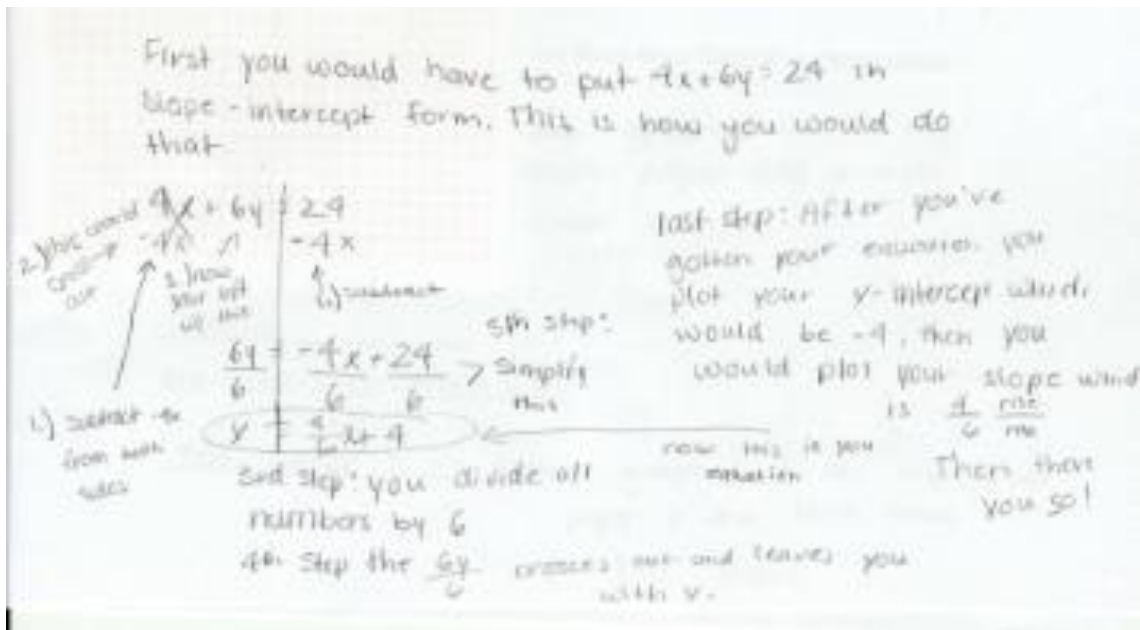 First you would have to put 4x+6y=24 in
slope-intercept form. This is how you would do
that
4x + 6y = 24
-4x -4x
2.) this would
out
3.) now
your left
w/ this
1.) subtract
1.) subtract 4x
from both
sides
6y/6 = -4x/6 + 24/6
5th step:
simplify
this
y = 4/6x + 4
now this is you
equation
3rd step: you divide all
numbers by 6
4th step the 6y/6 crosses out and leaves you
with y.
last step: After you've
gotten your equation, you
plot your y-intercept which
would be -4, then you
would plot your slope which
is 4/6 rise/run
Then there
you go!